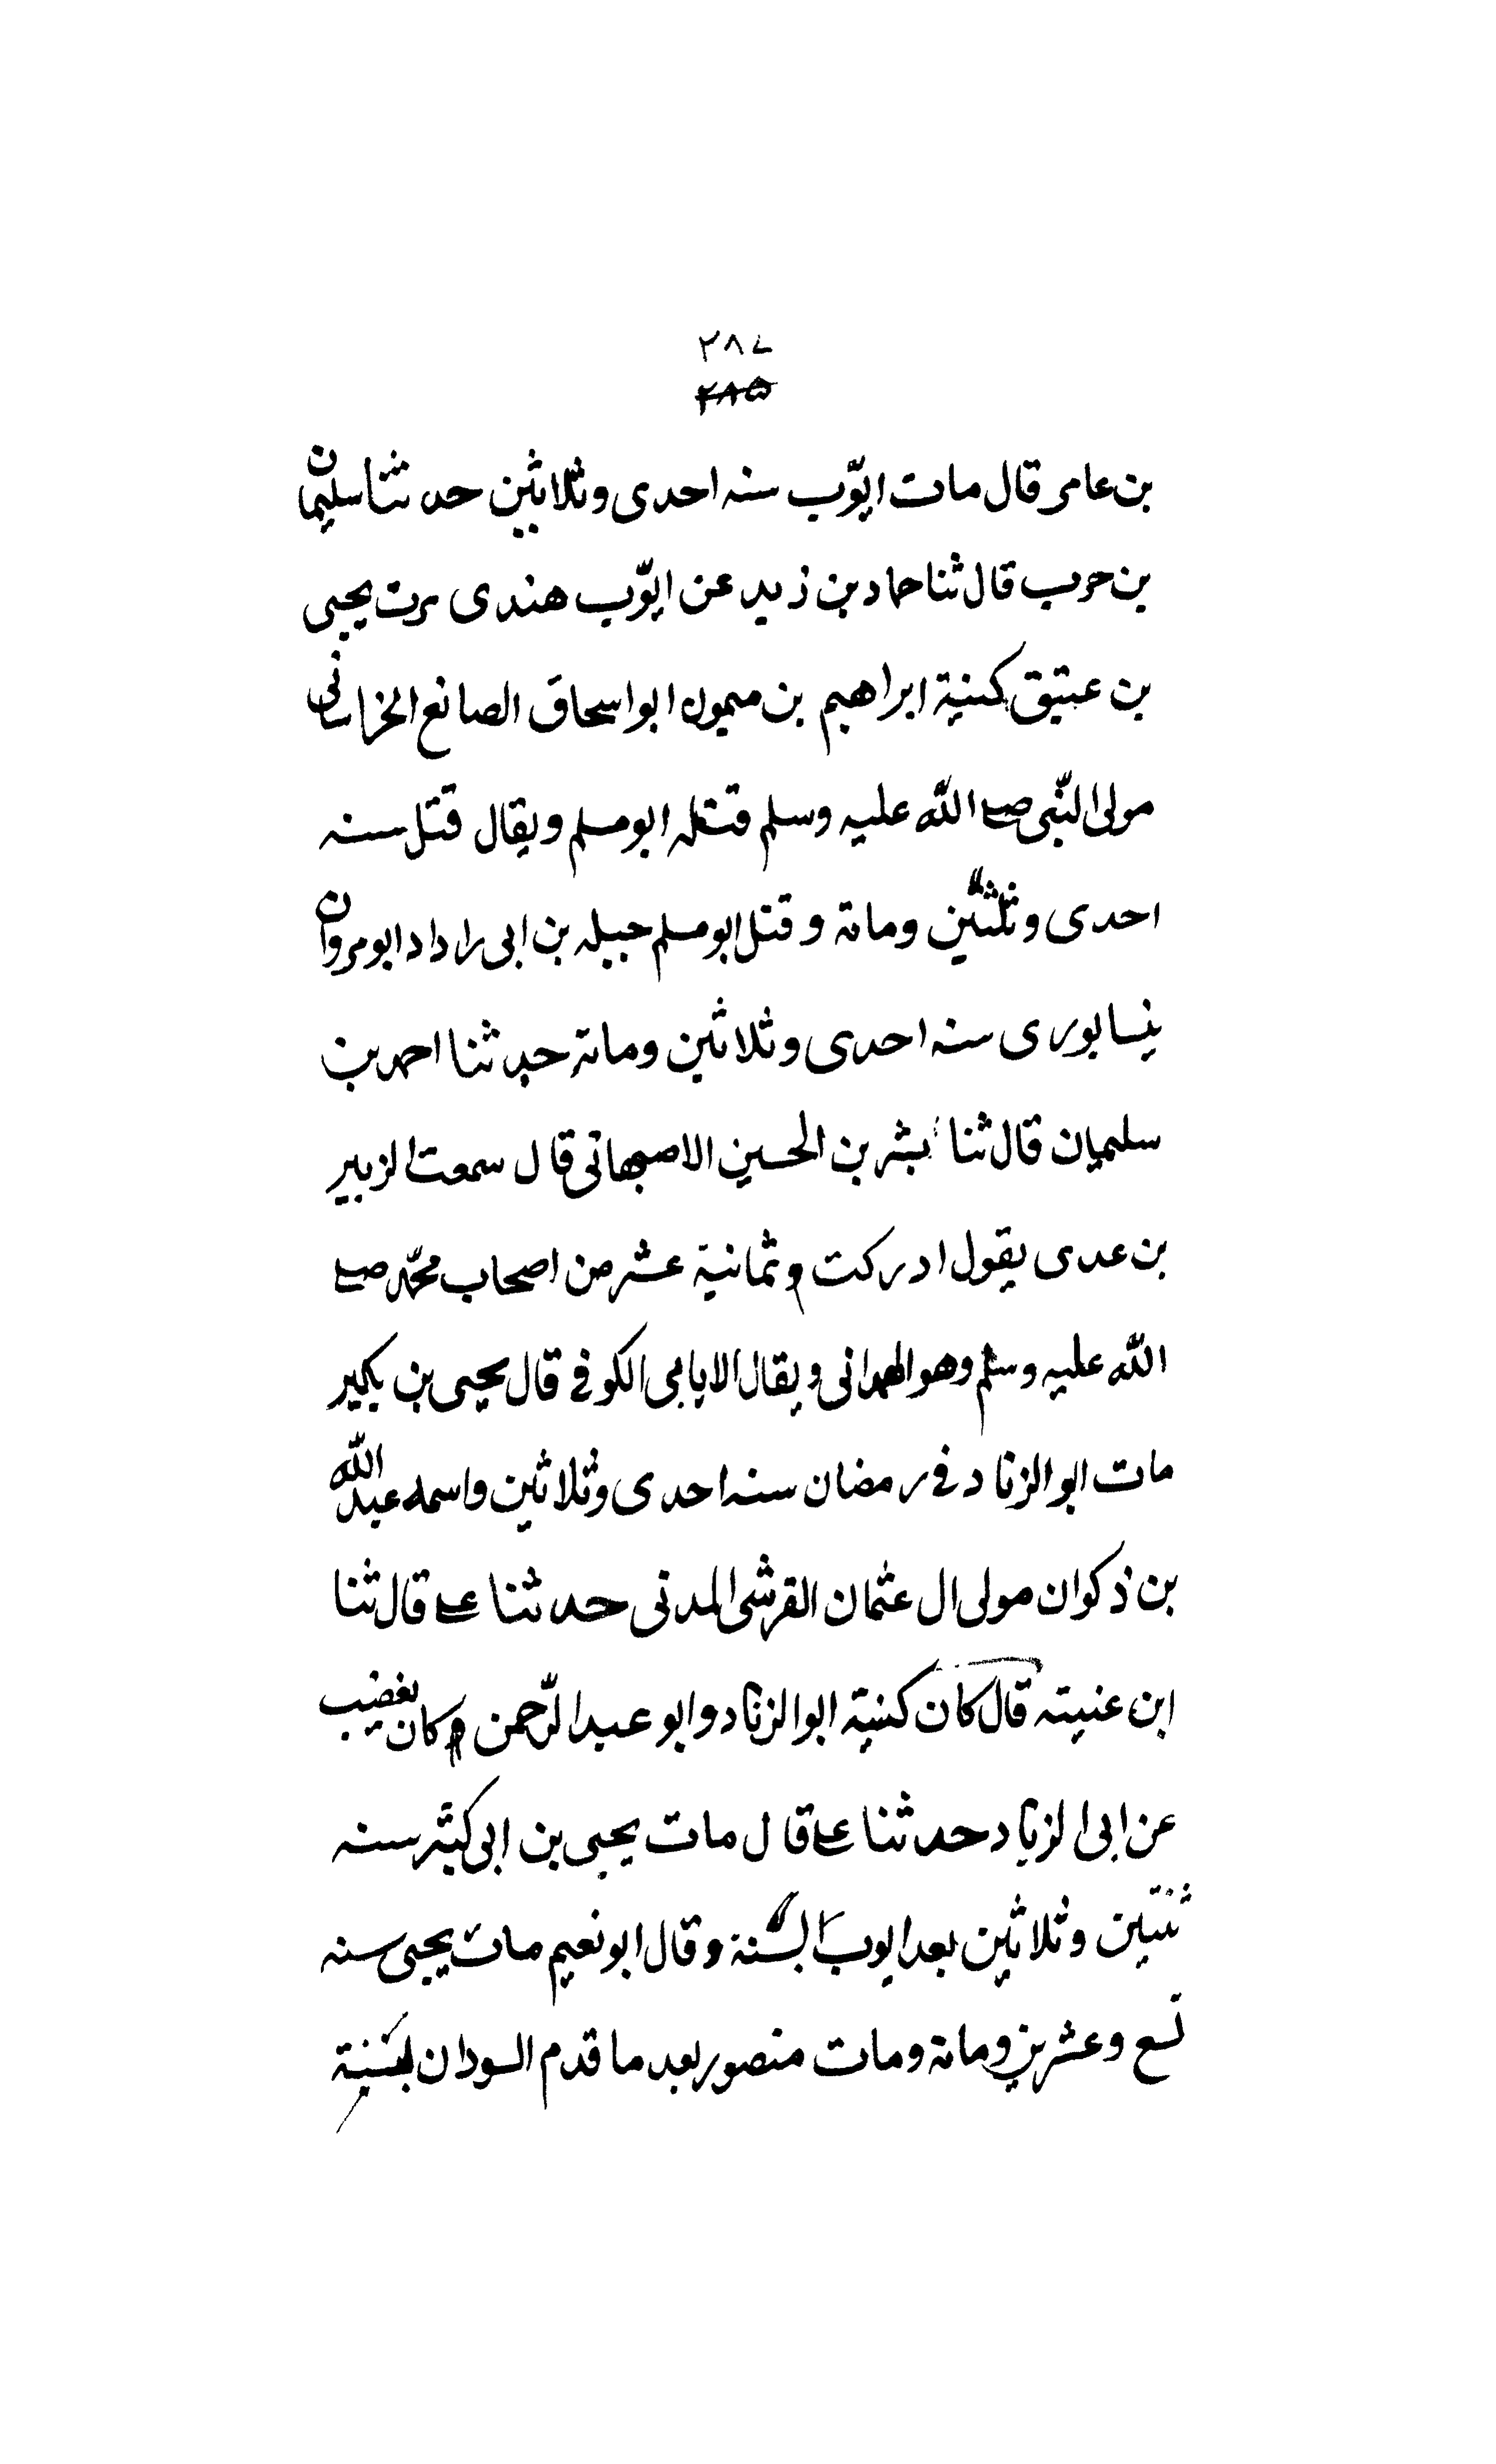 ٢٨٧
٢٨٥
بن عامر قال مات ايّوب سنه احدى وثلاثين حدثنا سليمان
بن حرب قال ثنا حماد بن زيد عن ايّوب هندى يرث يحيى
بن عتيق كنية ابراهيم بن ميمون ابو اسحاق الصانع الخراسانى
مولى النّبى صلے الله عليه وسلم قتله ابو مسلم ويقال قتل سنه
احدى وثلثين ومائة وقتل ابو مسلم جبله بن ابى راداد ابو مروان
نيسابورى سنه احدى وثلاثين ومائة حدثنا احمد بن
سليمان قال ثنا بشر بن الحسين الاصبهانى قال سمعت الزبير
بن عدى يقول ادركت وثمانية عشر من اصحاب محمّد صلے
الله عليه وسلم وهو الهمدانى ويقال الايامى الكوفى قال يحيى بن بكير
مات ابو الزناد فى رمضان سنه احدى وثلاثين واسمه عبد الله
بن ذكوان مولى ال عثمان القرشى المدنى حدثنا علے قال ثنا
ابن عنيته قال كان كنية ابو الزناد وابو عبد الرّحمن وكان يغضب
عن ابى الزناد حدثنا علے قال مات يحيى بن ابى كثير سنه
ثنتين وثلاثين بعد ايوب بسنة وقال ابو نعيم مات يحيى سنه
تسع وعشرين ومائة ومات منصور بعد ما قدم السودان بسنية